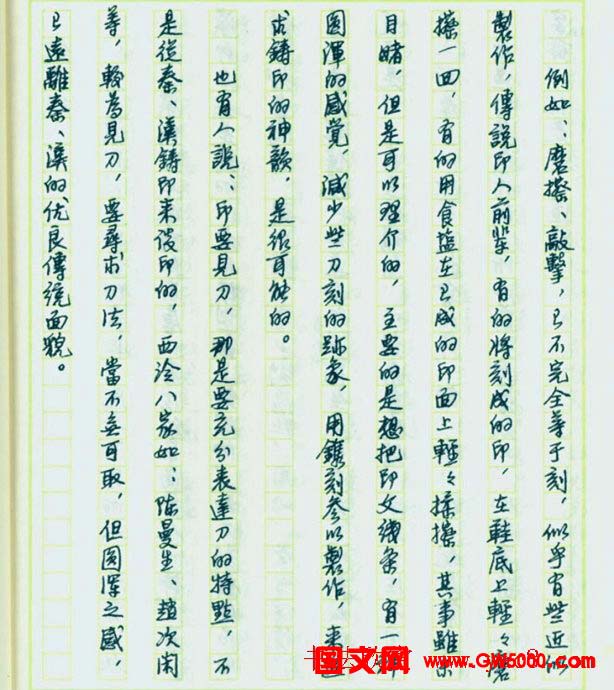 例如：磨擦、敲擊，已不完全等于刻，似乎有些近似
製作，傳説印人前輩，有的將刻成的印，在鞋底上輕々磨
擦一回，有的用食盐在已成的印面上輕々揉擦，其事雖
目睹，但是可以理介的，主要的是想把印文线条，有一
圆渾的感覚，减少些刀刻的跡象，用鐫刻参以製作，来
求鋳印的神韻，是很可能的。
也有人說：印要見刀，那是要充分表達刀的特點，不
是從秦、漢鋳印来谈印的，西泠八家如：陈曼生、趙次闲
等，較為見刀，要尋求刀法，當不無可取，但圆渾之感，
已遠離秦、漢的优良傳統面貌。
国文网 www.GW5000.com